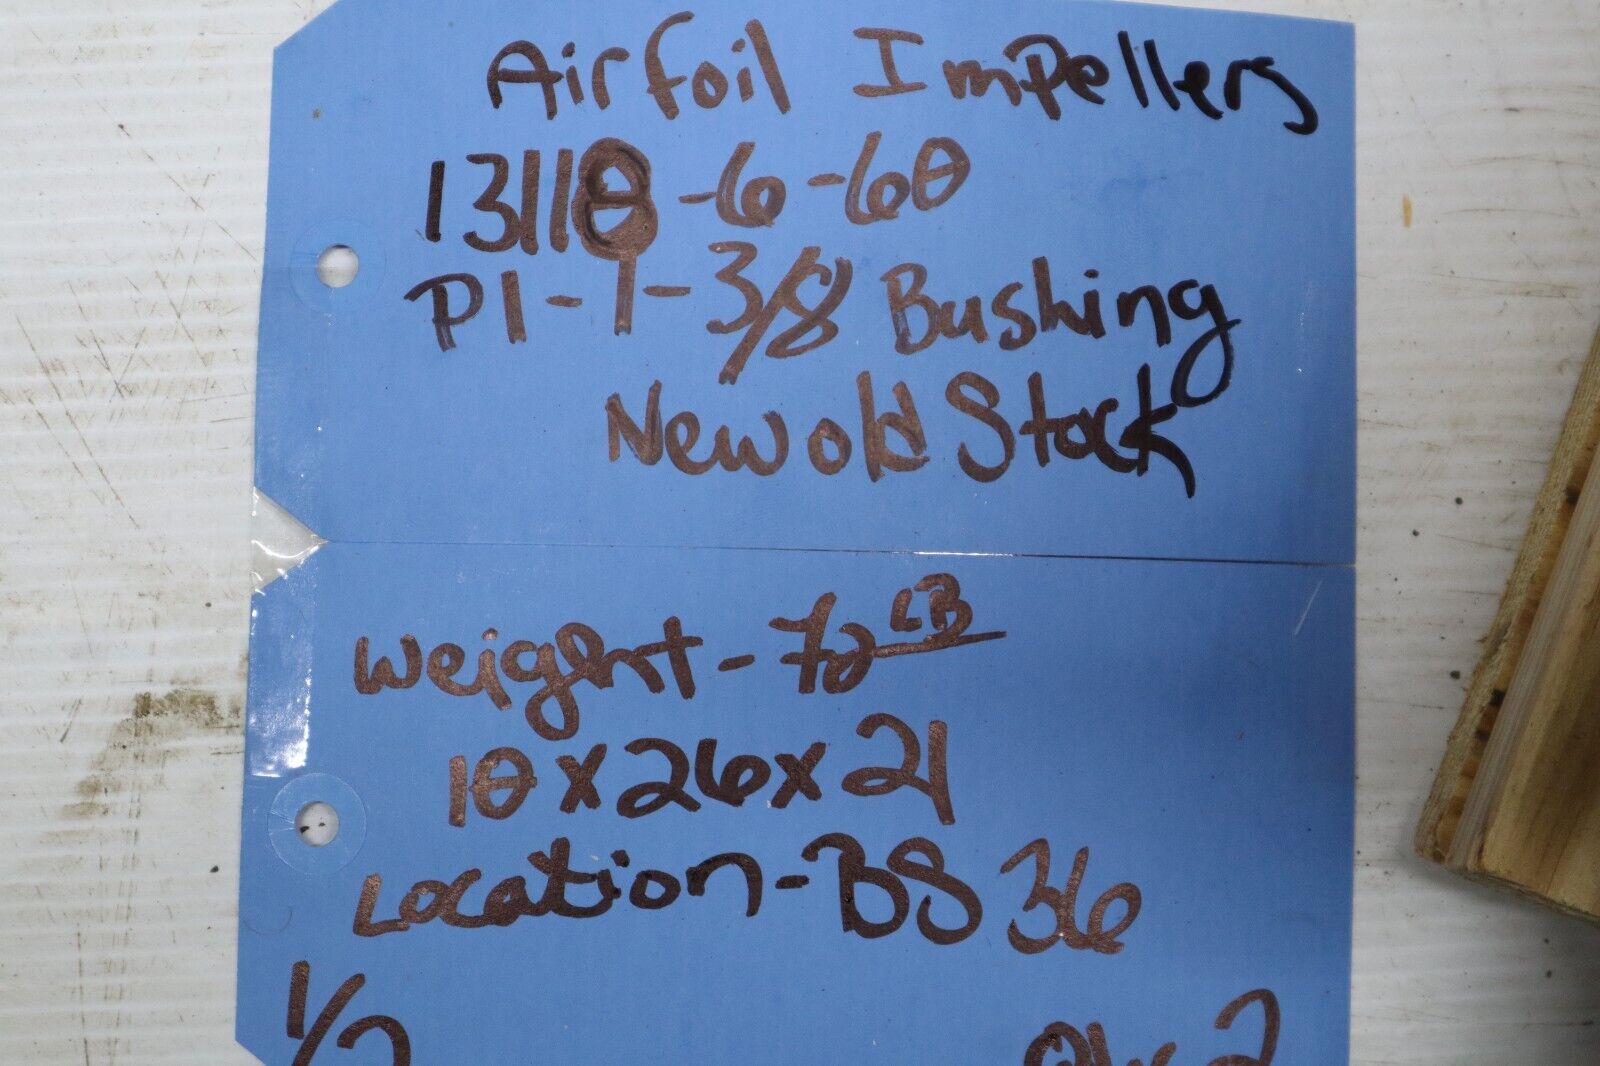 Airfoil Impellers
13118-6-60
P1-1-3/8 Bushing
New old Stock
Weight - 72 LB
10 x 26 x 21
Location - BS 36
1/2
Qty 2